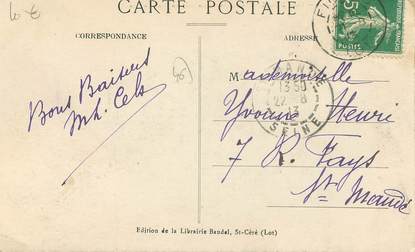 10 €
CARTE POSTALE
CORRESPONDANCE
ADRESSE
46
Bons Baisers
Mh. Cels
Mademoiselle
Yvonne Henri
7 R. Fays
St Mandé
13 50
22 - 8
13
SEINE
5
POSTES
Edition de la Librairie Baudel, St-Céré (Lot)